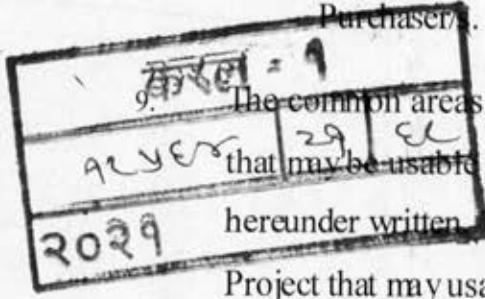 Purchaser/s.
करल - १
9. The common areas
२१ ६८
that may be usable
२०२१
hereunder written.
Project that may usa